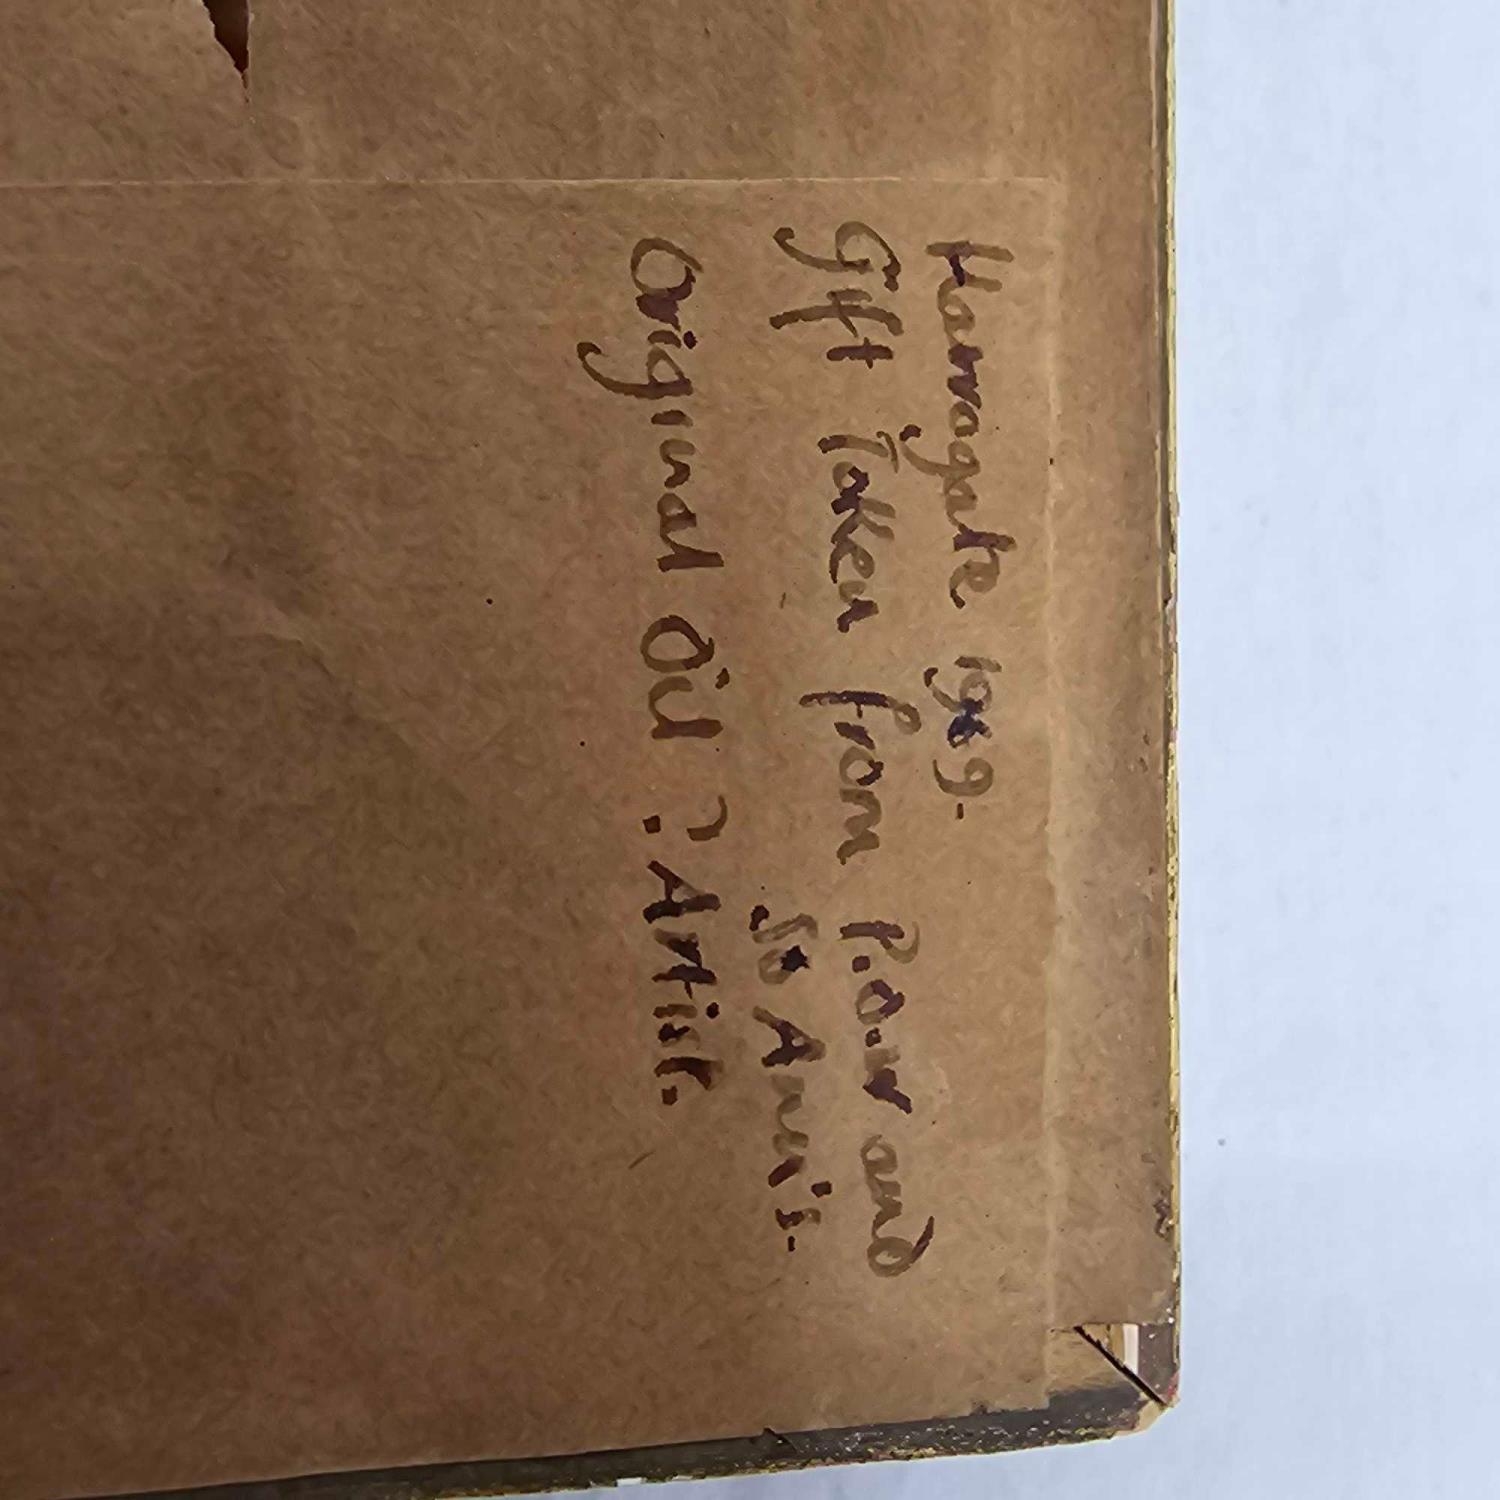 Harrogate 1989-
Gift Taken from P.O.W and
so Ann's-
Original Oil ? Artist.